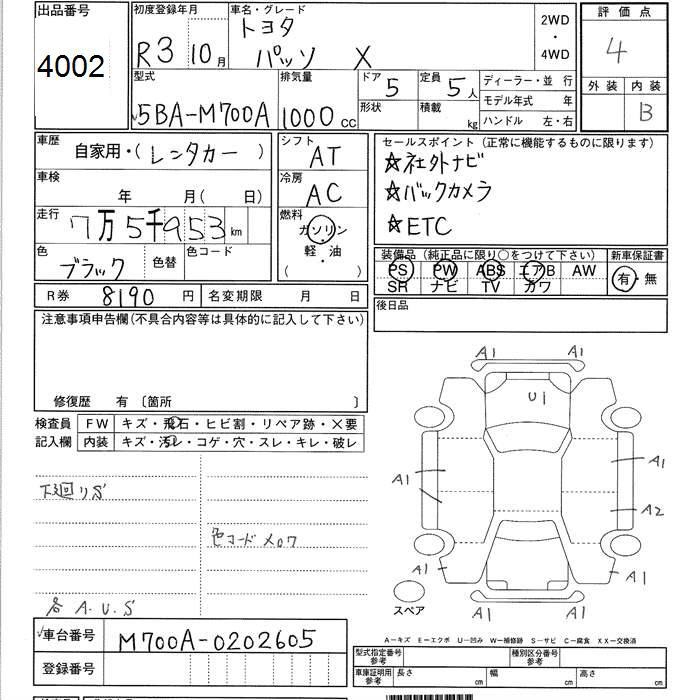 出品番号
4002
初度登録年月
R3 10月
車名・グレード
トヨタ
パッソ X
2WD
・
4WD
評価点
4
外装 内装
B
型式
5BA-M700A
排気量
1000 CC
ドア
5
形状
定員
5人
積載
kg
ディーラー・並 行
モデル年式 年
ハンドル 左・右
車歴
自家用・(レンタカー)
車検
年 月( 日)
走行
7万5千953 km
色
ブラック
色替
色コード
シフト
AT
冷房
AC
燃料
ガソリン
・
軽・油
( )
セールスポイント (正常に機能するものに限ります)
☆社外ナビ
☆バックカメラ
☆ETC
装備品 (純正品に限り○をつけて下さい)
PS PW ABS エアB AW
SR ナビ TV カワ
新車保証書
有・無
R券 8190 円
名変期限 月 日
後日品
注意事項申告欄(不具合内容等は具体的に記入して下さい)
修復歴 有 〔箇所 〕
検査員
記入欄
FW キズ・飛石・ヒビ割・リペア跡・×要
内装 キズ・汚レ・コゲ・穴・スレ・キレ・破レ
下廻りS
色コード X07
各 A.U.S
A1 A1
U1
A1 A1
A2
A1 A1
A1 A1
スペア
A－キズ E－エクボ U－凹み W－補修跡 S－サビ C－腐食 XX－交換済
車台番号
M700A-0202605
登録番号
型式指定番号
参考
種別区分番号
参考
車庫証明用
参考
長さ cm
幅 cm
高さ cm